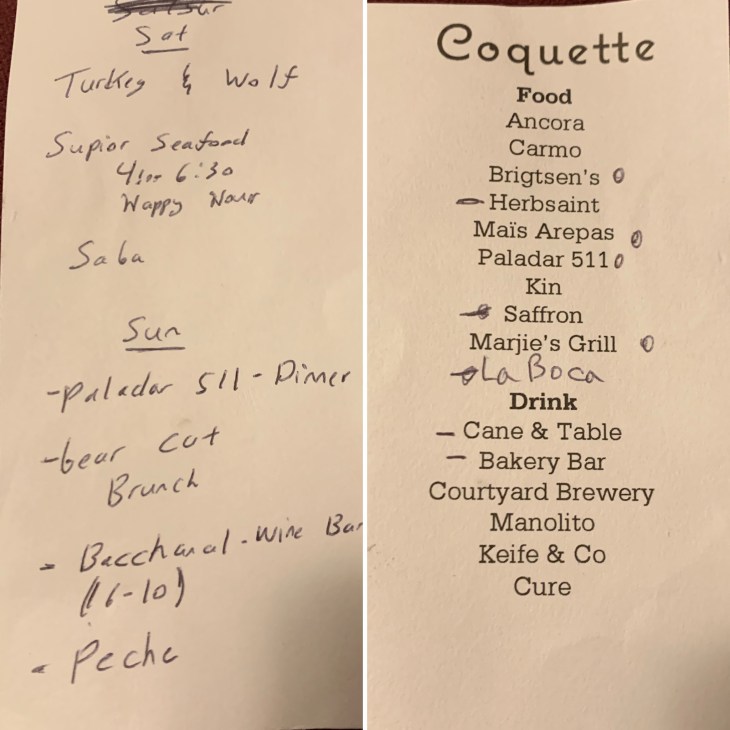 Sat
Turkey & Wolf
Supior Seafood
6:30
Wappy Hour
Saba
Sun
-paladar 511 - Dinner
-bear cat
Brunch
- Bacchanal - Wine Bar
- Peche
Coquette
Food
Ancora
Carmo
Brigtsen's
Herbsaint
Maïs Arepas
Paladar 511
Kin
Saffron
Marjie's Grill
La Boca
Drink
Cane & Table
Bakery Bar
Courtyard Brewery
Manolito
Keife & Co
Cure